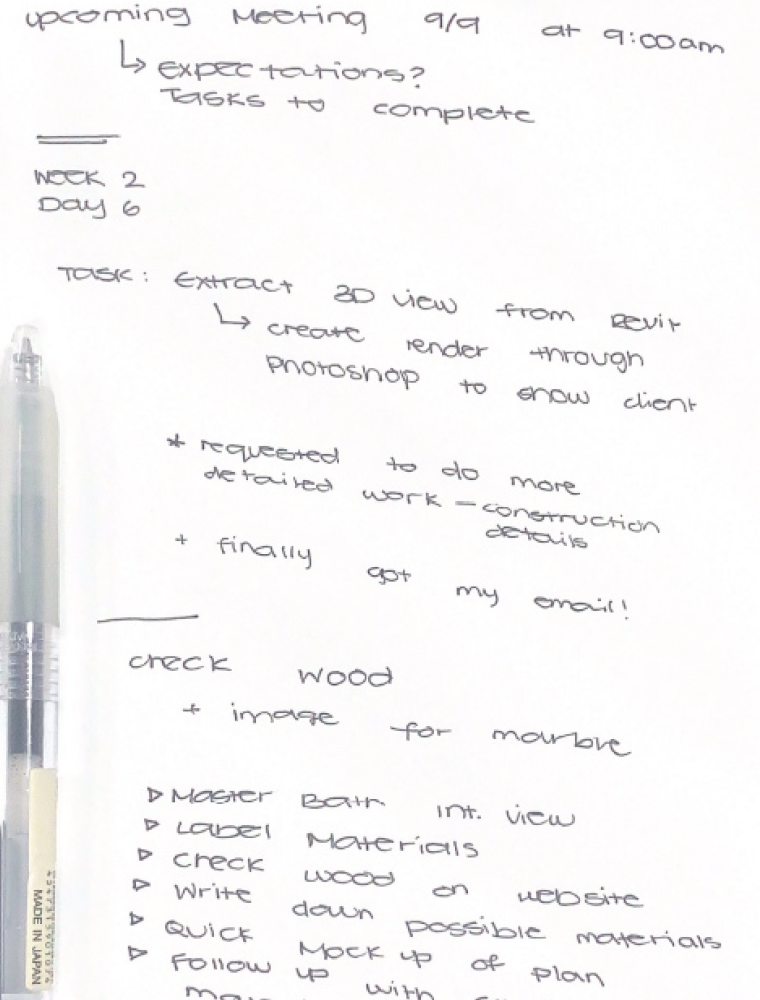 upcoming Meeting 9/9 at 9:00am
↳ expectations?
Tasks to complete
Week 2
Day 6
Task: Extract 3D view from Revit
↳ create render through
Photoshop to show client
* requested to do more
detailed work - construction
details
+ finally got my email!
check wood
+ image for marble
▷ Master Bath Int. view
▷ Label Materials
▷ Check wood on website
▷ Write down possible materials
▷ Quick Mock up of plan
▷ Follow up with
MADE IN JAPAN